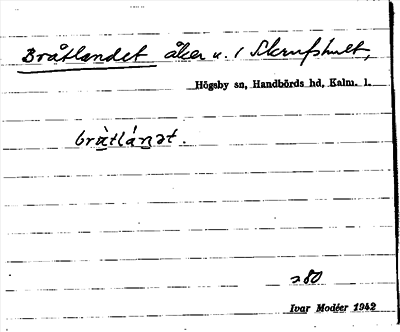 Bråtlandet åker u. 1 Skrufshult,
Högsby sn, Handbörds hd, Kalm. l.
bràtlánət.
280
Ivar Modéer 1942